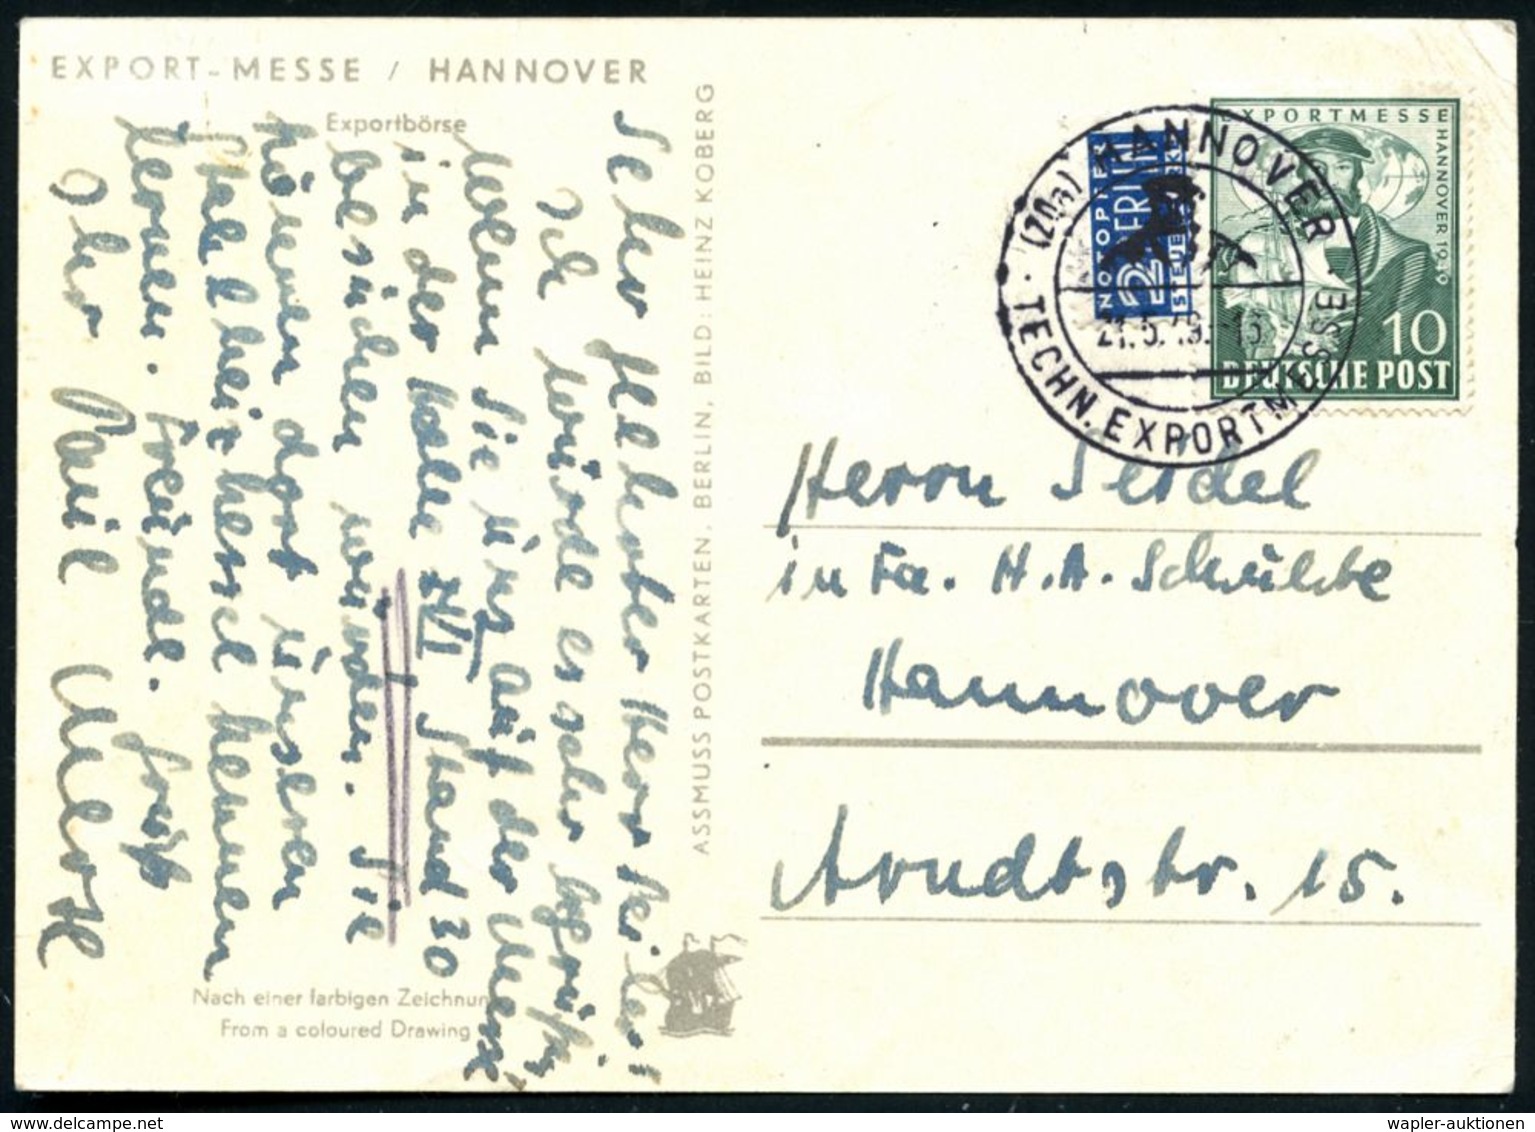 EXPORT-MESSE / HANNOVER
Exportbörse
Sehr geehrter Herr
Ich würde es sehr begrüßen
wenn Sie uns auf der Messe
in der Halle Stand 30
besuchen würden. Sie
können dort unseren
Stahlheizkessel kennen
lernen. Freundl. Gruß
Ihr Paul
Nach einer farbigen Zeichnung
From a coloured Drawing
ASSMUSS POSTKARTEN, BERLIN, BILD: HEINZ KOBERG
NOTOPFER
2 BERLIN
STEUERMARKE
(20a) HANNOVER
21.5.49.-13
TECHN. EXPORTMESSE
EXPORTMESSE
HANNOVER 1949
10
DEUTSCHE POST
Herrn Seidel
in Fa. H.A. Schultze
Hannover
Arndtstr. 15.
wapler-auktionen
delcampe.net